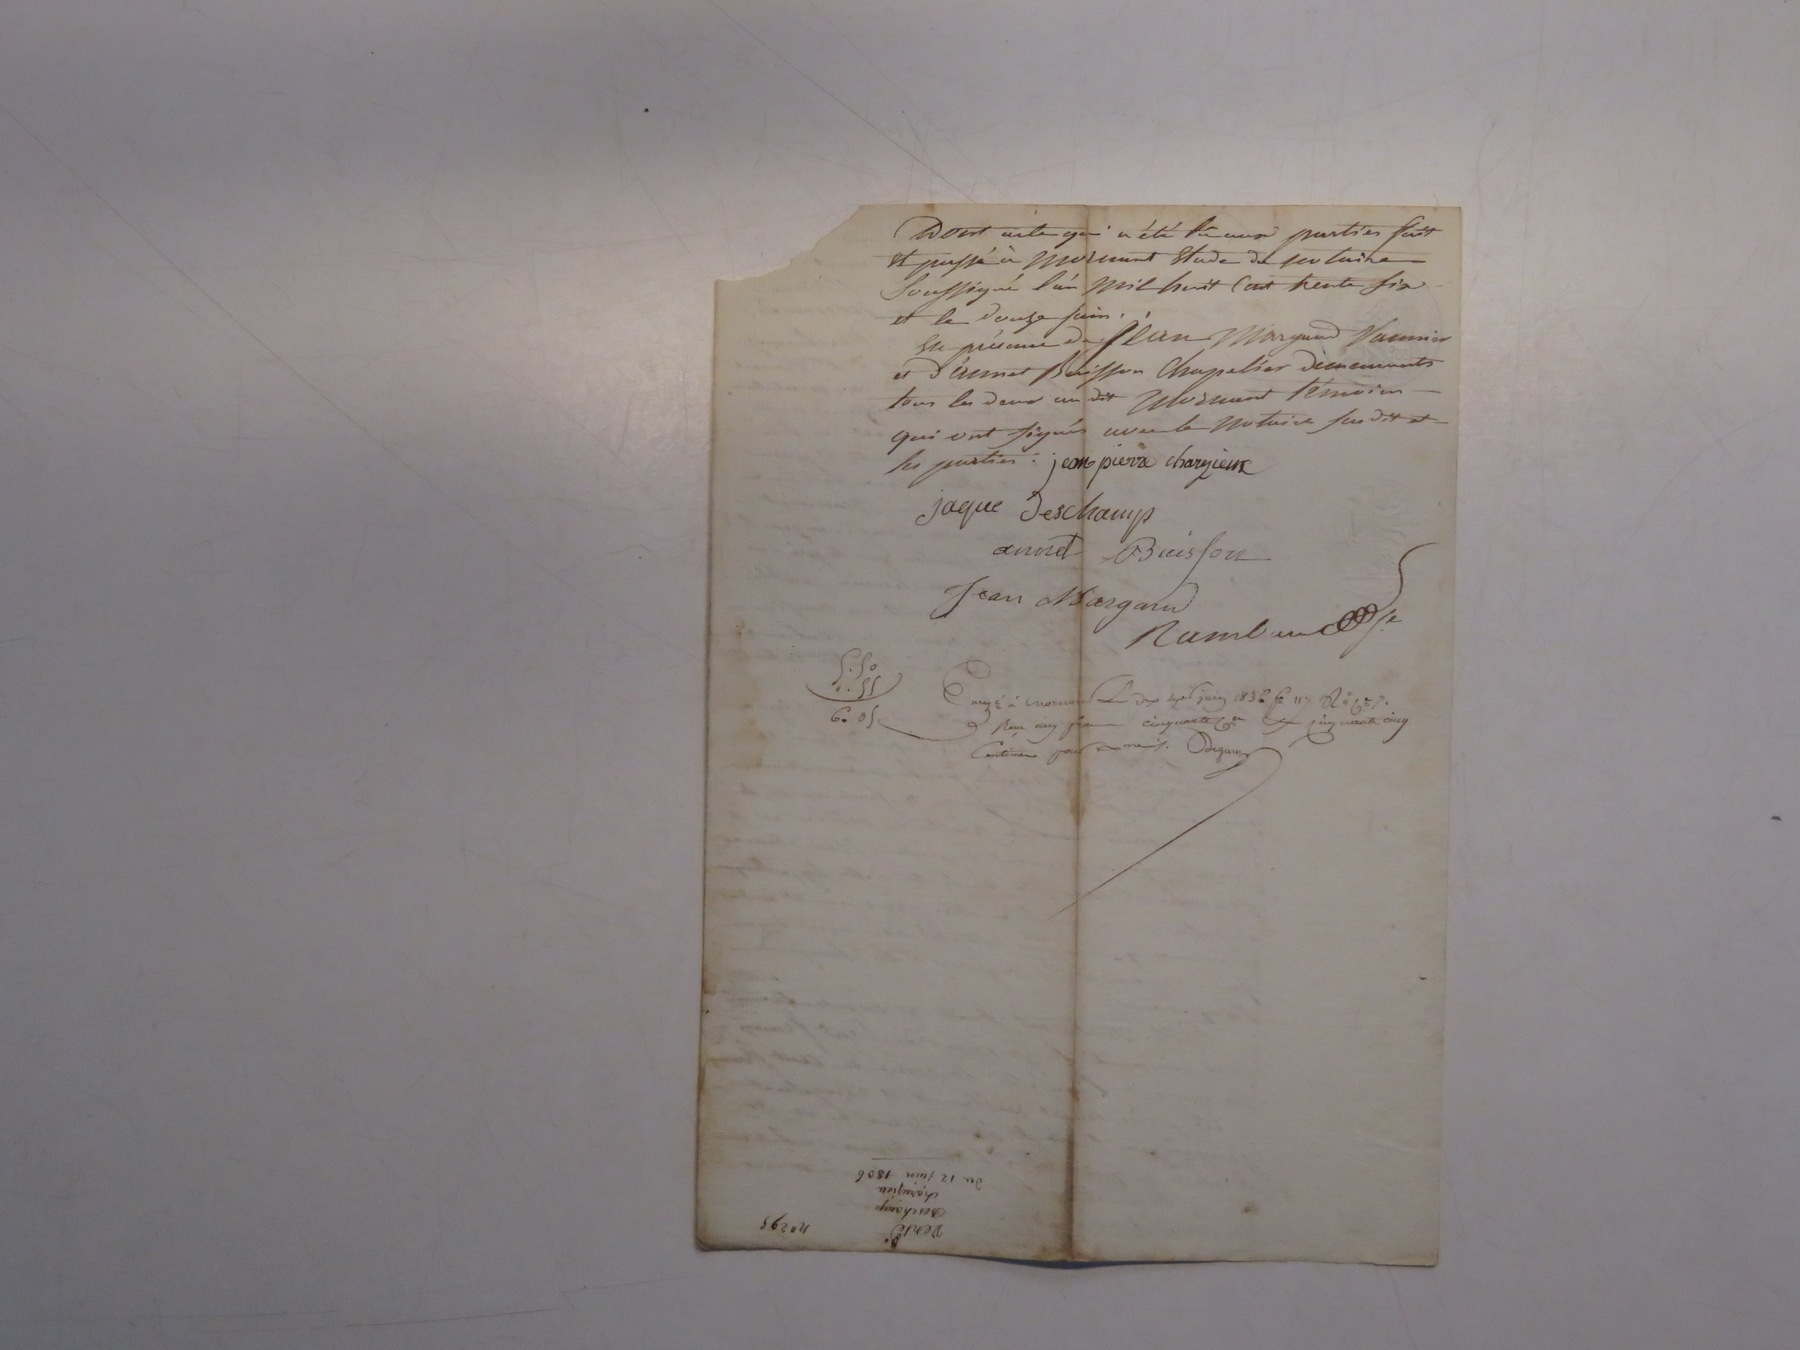 Dont acte qui a été lu aux parties fait
et passé à Mornant Etude du notaire
soussigné l'an mil huit cent trente six
et le douze juin.
En présence de Jean Margand Vannier
et d'annet Buisson Chapelier demeurants
tous les deux au dit Mornant témoins
qui ont signés avec le Notaire susdit et
les parties: jean pierre charezieux
jaque Deschamp
annet Buisson
Jean Margand
5.50
0.55
6.05
à Mornant Le dix sept juin 1836 f° 117
Reçu cinq francs cinquante et cinquante cinq
centimes pour
n° 295
Vente
Deschamp
charezieu
du 12 juin 1836